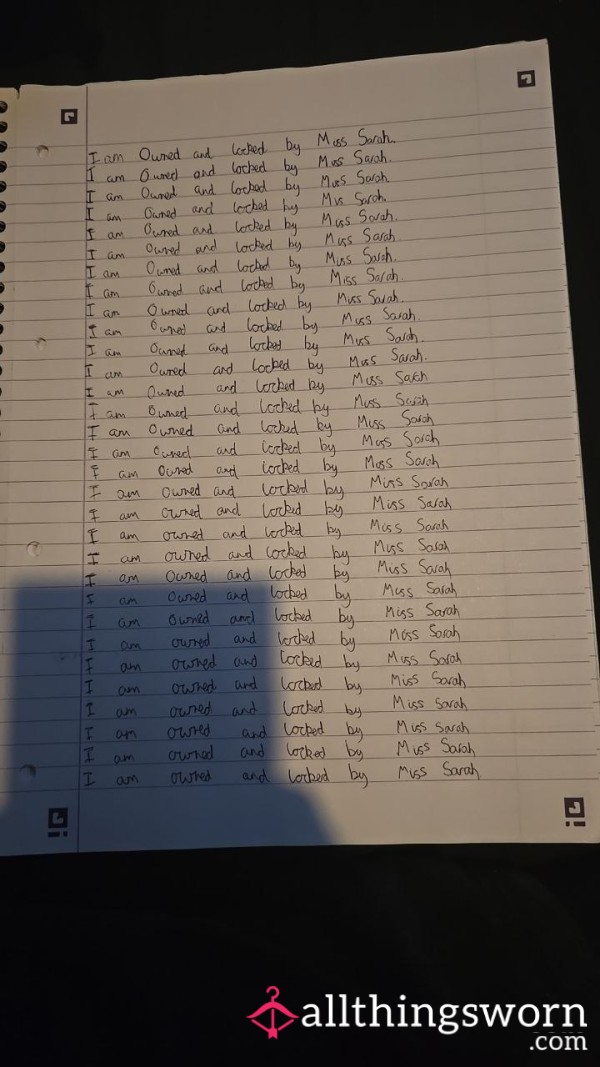 I am Owned and locked by Miss Sarah.
I am Owned and locked by Miss Sarah.
I am Owned and locked by Miss Sarah.
I am Owned and locked by Miss Sarah.
I am Owned and locked by Miss Sarah.
I am Owned and locked by Miss Sarah.
I am Owned and locked by Miss Sarah.
I am Owned and locked by Miss Sarah.
I am Owned and locked by Miss Sarah.
I am Owned and locked by Miss Sarah.
I am Owned and locked by Miss Sarah.
I am Owned and locked by Miss Sarah.
I am Owned and locked by Miss Sarah
I am Owned and locked by Miss Sarah
I am Owned and locked by Miss Sarah
I am owned and locked by Miss Sarah
I am Owned and locked by Miss Sarah
I am Owned and locked by Miss Sarah
I am owned and locked by Miss Sarah
I am owned and locked by Miss Sarah
I am owned and locked by Miss Sarah
I am Owned and locked by Miss Sarah
I am Owned and locked by Miss Sarah
I am Owned and locked by Miss Sarah
I am owned and locked by Miss Sarah
I am owned and locked by Miss Sarah
I am owned and locked by Miss Sarah
I am owned and locked by Miss Sarah
I am owned and locked by Miss Sarah
I am owned and locked by Miss Sarah
I am owned and locked by Miss Sarah
allthingsworn
.com